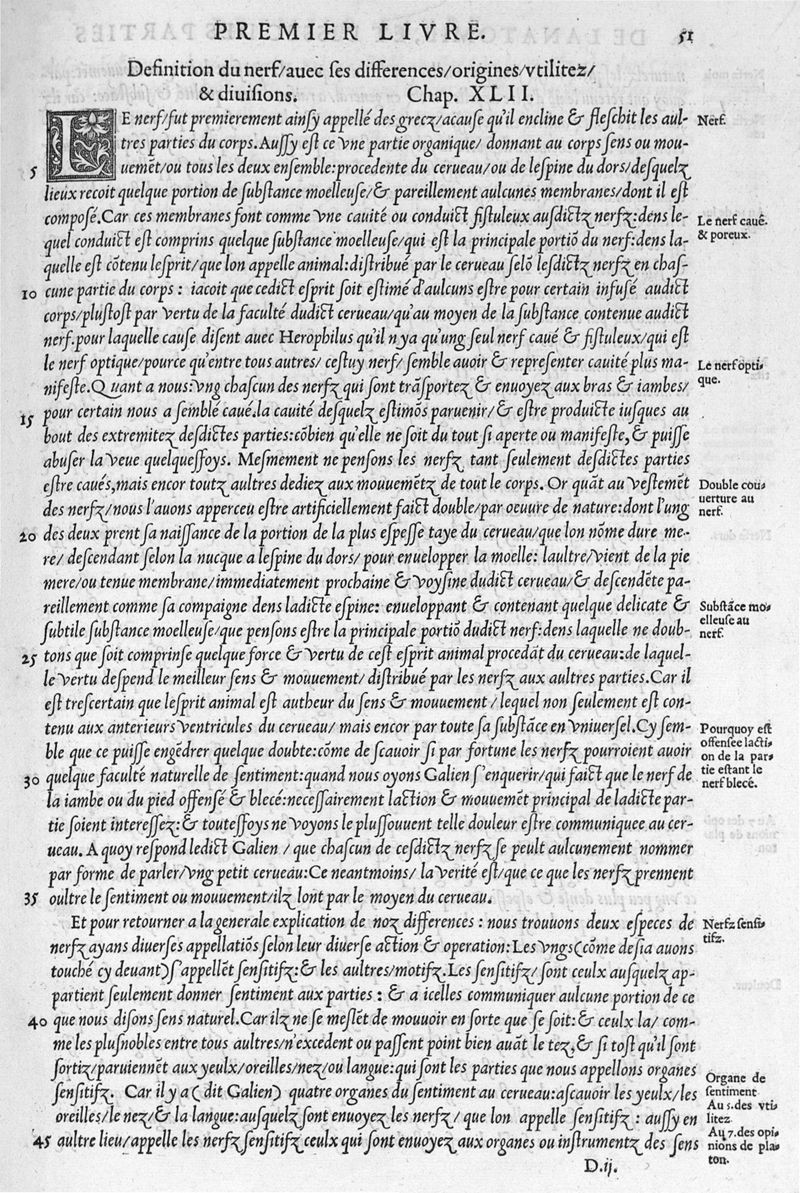 PREMIER LIVRE. 51
Definition du nerf/auec ses differences/origines/vtilitez/
& diuisions. Chap. XLII.
LE nerf/fut premierement ainsy appellé des grecz/acause qu'il encline & fleschit les aul-
tres parties du corps. Aussy est ce vne partie organique/ donnant au corps sens ou mou-
5 uemẽt/ou tous les deux ensemble:procedente du cerueau/ou de lespine du dors/desquelz
lieux recoit quelque portion de substance moelleuse/& pareillement aulcunes membranes/dont il est
composé.Car ces membranes sont comme vne cauité ou conduict fistuleux ausdictz nerfz:dens le-
quel conduict est comprins quelque substance moelleuse/qui est la principale portiõ du nerf:dens la-
quelle est cõtenu lesprit/que lon appelle animal:distribué par le cerueau selõ lesdictz nerfz en chas-
10 cune partie du corps : iacoit que cedict esprit soit estimé d'aulcuns estre pour certain infusé audict
corps/plustost par vertu de la faculté dudict cerueau/qu'au moyen de la substance contenue audict
nerf.pour laquelle cause disent auec Herophilus qu'il n'ya qu'vng seul nerf caué & fistuleux/qui est
le nerf optique/pource qu'entre tous autres/ cestuy nerf/ semble auoir & representer cauité plus ma-
nifeste.Quant a nous:vng chascun des nerfz qui sont trãsportez & enuoyez aux bras & iambes/
15 pour certain nous a semblé caué.la cauité desquelz estimõs paruenir/& estre produicte iusques au
bout des extremitez desdictes parties:cõbien qu'elle ne soit du tout si aperte ou manifeste,& puisse
abuser la veue quelquessoys. Mesmement ne pensons les nerfz tant seulement desdictes parties
estre caués,mais encor toutz aultres dediez aux mouuemẽtz de tout le corps. Or quãt au vestemẽt
des nerfz/nous l'auons apperceu estre artificiellement faict double/par oeuure de nature:dont l'ung
20 des deux prent sa naissance de la portion de la plus espesse taye du cerueau/que lon nõme dure me-
re/ descendant selon la nucque a lespine du dors/ pour enuelopper la moelle: laultre/vient de la pie
mere/ou tenue membrane/immediatement prochaine & voysine dudict cerueau/& descendẽte pa-
reillement comme sa compaigne dens ladicte espine: enueloppant & contenant quelque delicate &
subtile substance moelleuse/que pensons estre la principale portiõ dudict nerf:dens laquelle ne doub-
25 tons que soit comprinse quelque force & vertu de cest esprit animal procedãt du cerueau:de laquel-
le vertu despend le meilleur sens & mouuement/ distribué par les nerfz aux aultres parties.Car il
est trescertain que lesprit animal est autheur du sens & mouuement / lequel non seulement est con-
tenu aux anterieurs ventricules du cerueau/ mais encor par toute sa substãce en vniuersel.Cy sem-
ble que ce puisse engẽdrer quelque doubte:cõme de scauoir si par fortune les nerfz pourroient auoir
30 quelque faculté naturelle de sentiment:quand nous oyons Galien s'enquerir/qui faict que le nerf de
la iambe ou du pied offensé & blecé:necessairement laction & mouuemẽt principal de ladicte par-
tie soient interessez:& toutessoys ne voyons le plussouuent telle douleur estre communiquee au cer-
ueau. A quoy respond ledict Galien / que chascun de cesdictz nerfz se peult aulcunement nommer
par forme de parler/vng petit cerueau:Ce neantmoins/ la verité est/que ce que les nerfz prennent
35 oultre le sentiment ou mouuement/ilz lont par le moyen du cerueau.
Et pour retourner a la generale explication de noz differences : nous trouuons deux especes de
nerfz ayans diuerses appellatiõs selon leur diuerse action & operation:Les vngs(cõme desia auons
touché cy deuant)s'appellẽt sensitifz:& les aultres/motifz.Les sensitifz/ sont ceulx ausquelz ap-
partient seulement donner sentiment aux parties : & a icelles communiquer aulcune portion de ce
40 que nous disons sens naturel.Car ilz ne se meslẽt de mouuoir en sorte que se soit:& ceulx la/ com-
me les plusnobles entre tous aultres/n'excedent ou passent point bien auãt le tez,& si tost qu'il sont
sortiz/paruiennẽt aux yeulx/oreilles/nez/ou langue:qui sont les parties que nous appellons organes
sensitifz. Car il y a ( dit Galien) quatre organes du sentiment au cerueau:ascauoir les yeulx/les
oreilles/le nez/& la langue:ausquelz sont enuoyez les nerfz/ que lon appelle sensitifz : aussy en
45 aultre lieu/appelle les nerfz sensitifz ceulx qui sont enuoyez aux organes ou instrumentz des sens
D.ij.
Nerf.
Le nerf caué.
& poreux.
Le nerf opti-
que.
Double cou-
uerture au
nerf.
Substãce mo-
elleuse au
nerf.
Pourquoy est
offensee lacti-
on de la par-
tie estant le
nerf blecé.
Nerfz sensi-
tifz.
Organe de
sentiment
Au 5.des vti-
litez
Au 7.des opi-
nions de pla-
ton.